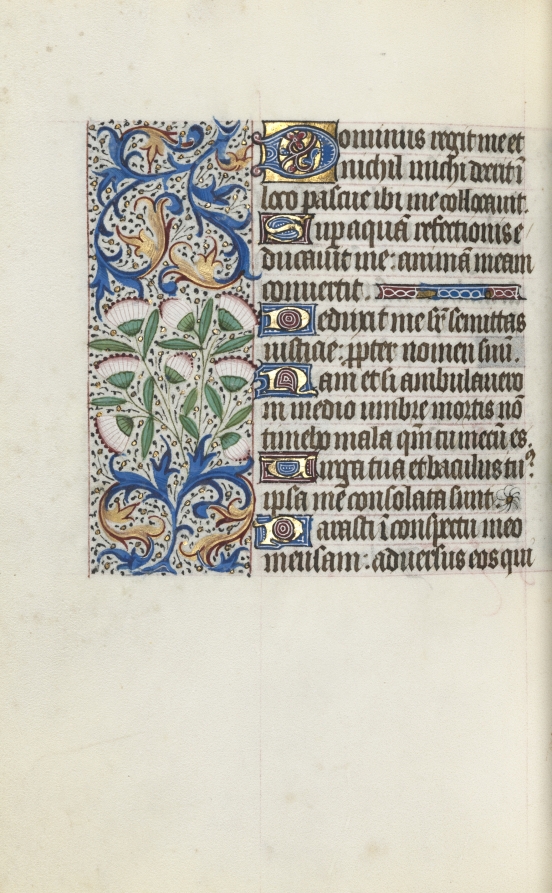 Dominus regit me et
nichil michi deerit ī
loco pascue ibi me collocauit.
Sup aquā refectionis e
ducauit me: animā meam
conuertit
Deduxit me sr̄ semittas
iusticie: ꝓpter nomen suū.
Nam et si ambulauero
in medio umbre mortis nō
timebo mala qm̄ tu mecū es.
Uirga tua et baculus tu9
ipsa me consolata sunt
Parasti ī conspectu meo
mensam: aduersus eos qui